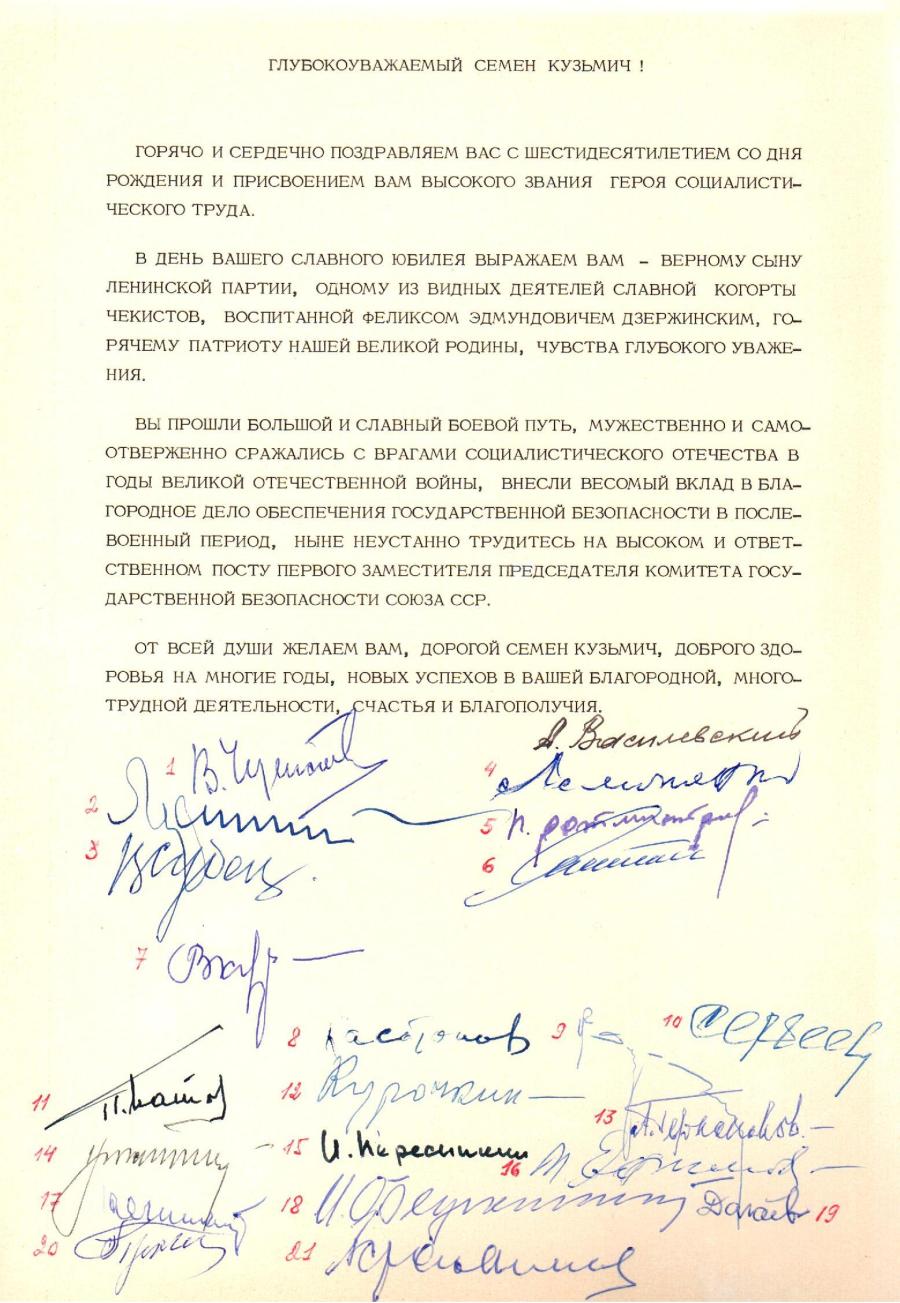 ГЛУБОКОУВАЖАЕМЫЙ СЕМЕН КУЗЬМИЧ !
ГОРЯЧО И СЕРДЕЧНО ПОЗДРАВЛЯЕМ ВАС С ШЕСТИДЕСЯТИЛЕТИЕМ СО ДНЯ
РОЖДЕНИЯ И ПРИСВОЕНИЕМ ВАМ ВЫСОКОГО ЗВАНИЯ ГЕРОЯ СОЦИАЛИСТИ-
ЧЕСКОГО ТРУДА.
В ДЕНЬ ВАШЕГО СЛАВНОГО ЮБИЛЕЯ ВЫРАЖАЕМ ВАМ – ВЕРНОМУ СЫНУ
ЛЕНИНСКОЙ ПАРТИИ, ОДНОМУ ИЗ ВИДНЫХ ДЕЯТЕЛЕЙ СЛАВНОЙ КОГОРТЫ
ЧЕКИСТОВ, ВОСПИТАННОЙ ФЕЛИКСОМ ЭДМУНДОВИЧЕМ ДЗЕРЖИНСКИМ, ГО-
РЯЧЕМУ ПАТРИОТУ НАШЕЙ ВЕЛИКОЙ РОДИНЫ, ЧУВСТВА ГЛУБОКОГО УВАЖЕ-
НИЯ.
ВЫ ПРОШЛИ БОЛЬШОЙ И СЛАВНЫЙ БОЕВОЙ ПУТЬ, МУЖЕСТВЕННО И САМО-
ОТВЕРЖЕННО СРАЖАЛИСЬ С ВРАГАМИ СОЦИАЛИСТИЧЕСКОГО ОТЕЧЕСТВА В
ГОДЫ ВЕЛИКОЙ ОТЕЧЕСТВЕННОЙ ВОЙНЫ, ВНЕСЛИ ВЕСОМЫЙ ВКЛАД В БЛА-
ГОРОДНОЕ ДЕЛО ОБЕСПЕЧЕНИЯ ГОСУДАРСТВЕННОЙ БЕЗОПАСНОСТИ В ПОСЛЕ-
ВОЕННЫЙ ПЕРИОД, НЫНЕ НЕУСТАННО ТРУДИТЕСЬ НА ВЫСОКОМ И ОТВЕТ-
СТВЕННОМ ПОСТУ ПЕРВОГО ЗАМЕСТИТЕЛЯ ПРЕДСЕДАТЕЛЯ КОМИТЕТА ГОСУ-
ДАРСТВЕННОЙ БЕЗОПАСНОСТИ СОЮЗА ССР.
ОТ ВСЕЙ ДУШИ ЖЕЛАЕМ ВАМ, ДОРОГОЙ СЕМЕН КУЗЬМИЧ, ДОБРОГО ЗДО-
РОВЬЯ НА МНОГИЕ ГОДЫ, НОВЫХ УСПЕХОВ В ВАШЕЙ БЛАГОРОДНОЙ, МНОГО-
ТРУДНОЙ ДЕЯТЕЛЬНОСТИ, СЧАСТЬЯ И БЛАГОПОЛУЧИЯ.
А. Василевский
1 В. Чуйков
4
2
5
3
6
7
8
9
10 Сергеев
11 П. Батов
12 Курочкин
13
14
15
16
17
18
19
20
21